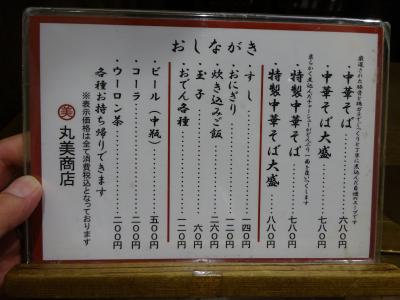 おしながき
厳選された豚骨と鶏ガラでじっくりと丁寧に煮込んだ自慢のスープです
・中華そば・・・・・・・・六八〇円
・中華そば大盛・・・・・・七八〇円
柔らかく煮込んだチャーシューがどんぶり一面を覆いつくします
・特製中華そば・・・・・・七八〇円
・特製中華そば大盛・・・・八八〇円
・すし・・・・・・・・・・一四〇円
・おにぎり・・・・・・・・一二〇円
・炊き込みご飯・・・・・・二六〇円
・玉子・・・・・・・・・・六〇円
・おでん各種・・・・・・・一二〇円
・ビール(中瓶)・・・・・五〇〇円
・コーラ・・・・・・・・・二〇〇円
・ウーロン茶・・・・・・・二〇〇円
各種お持ち帰りできます
※表示価格は全て消費税込となっております
美 丸美商店